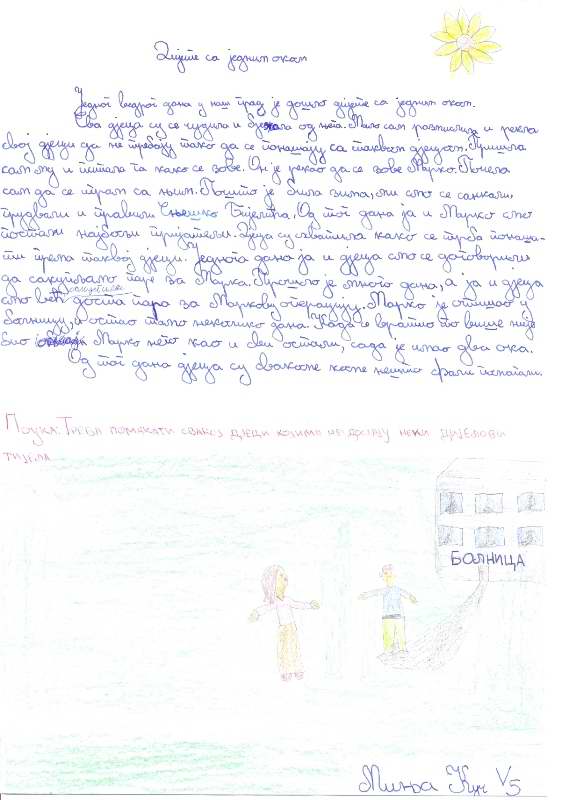 Дијете са једним оком
Једног ведрог дана у наш град је дошло дијете са једним оком.
Сва дјеца су се чудила и бјежала од њега. Мало сам размислила и рекла
свој дјеци да не требају тако да се понашају са таквом дјецом. Пришла
сам му и питала га како се зове. Он је рекао да се зове Марко. Почела
сам да се играм са њим. Пошто је била зима, ми смо се санкали,
грудвали и правили Сњешко Бијелића. Од тог дана ја и Марко смо
постали најбољи пријатељи. Дјеца су схватила како се треба понаша-
ти према таквој дјеци. Једнога дана ја и дјеца смо се договорили
да сакупљамо паре за Марка. Прошло је много дана, а ја и дјеца
смо већ сакупили доста пара за Маркову операцију. Марко је отишао у
болницу, и остао тамо неколико дана. Када се вратио он више није
био Марко него као и сви остали, сада је имао два ока.
Од тог дана дјеца су свакоме коме нешто фали помагали.
Поука: Треба помагати свакој дјеци којима недостају неки дијелови
тијела
БОЛНИЦА
Миња Кун V5